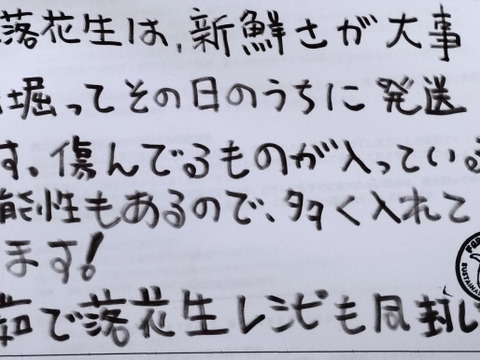 落花生は、新鮮さが大事
掘ってその日のうちに発送
す、傷んでるものが入っている
能性もあるので、多く入れて
ます！
茹で落花生レシピも同封し